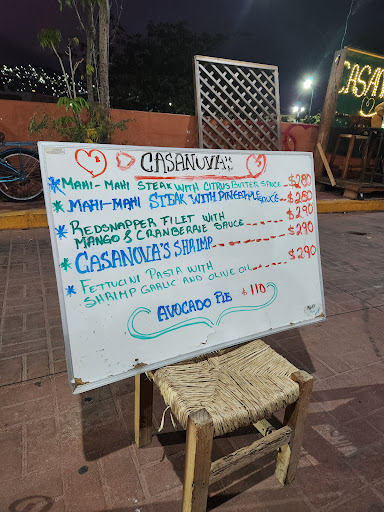 CASANOVA'S
* MAHI-MAHI STEAK WITH CITRUS BUTTER SAUCE --- $280
* MAHI-MAHI STEAK WITH PINEAPPLE SAUCE --- $280
* REDSNAPPER FILET WITH
MANGO & CRANBERRIE SAUCE --- $290
* CASANOVA'S SHRIMP --- $290
* FETTUCINI PASTA WITH
SHRIMP GARLIC AND OLIVE OIL --- $290
AVOCADO PIE $110
CASA